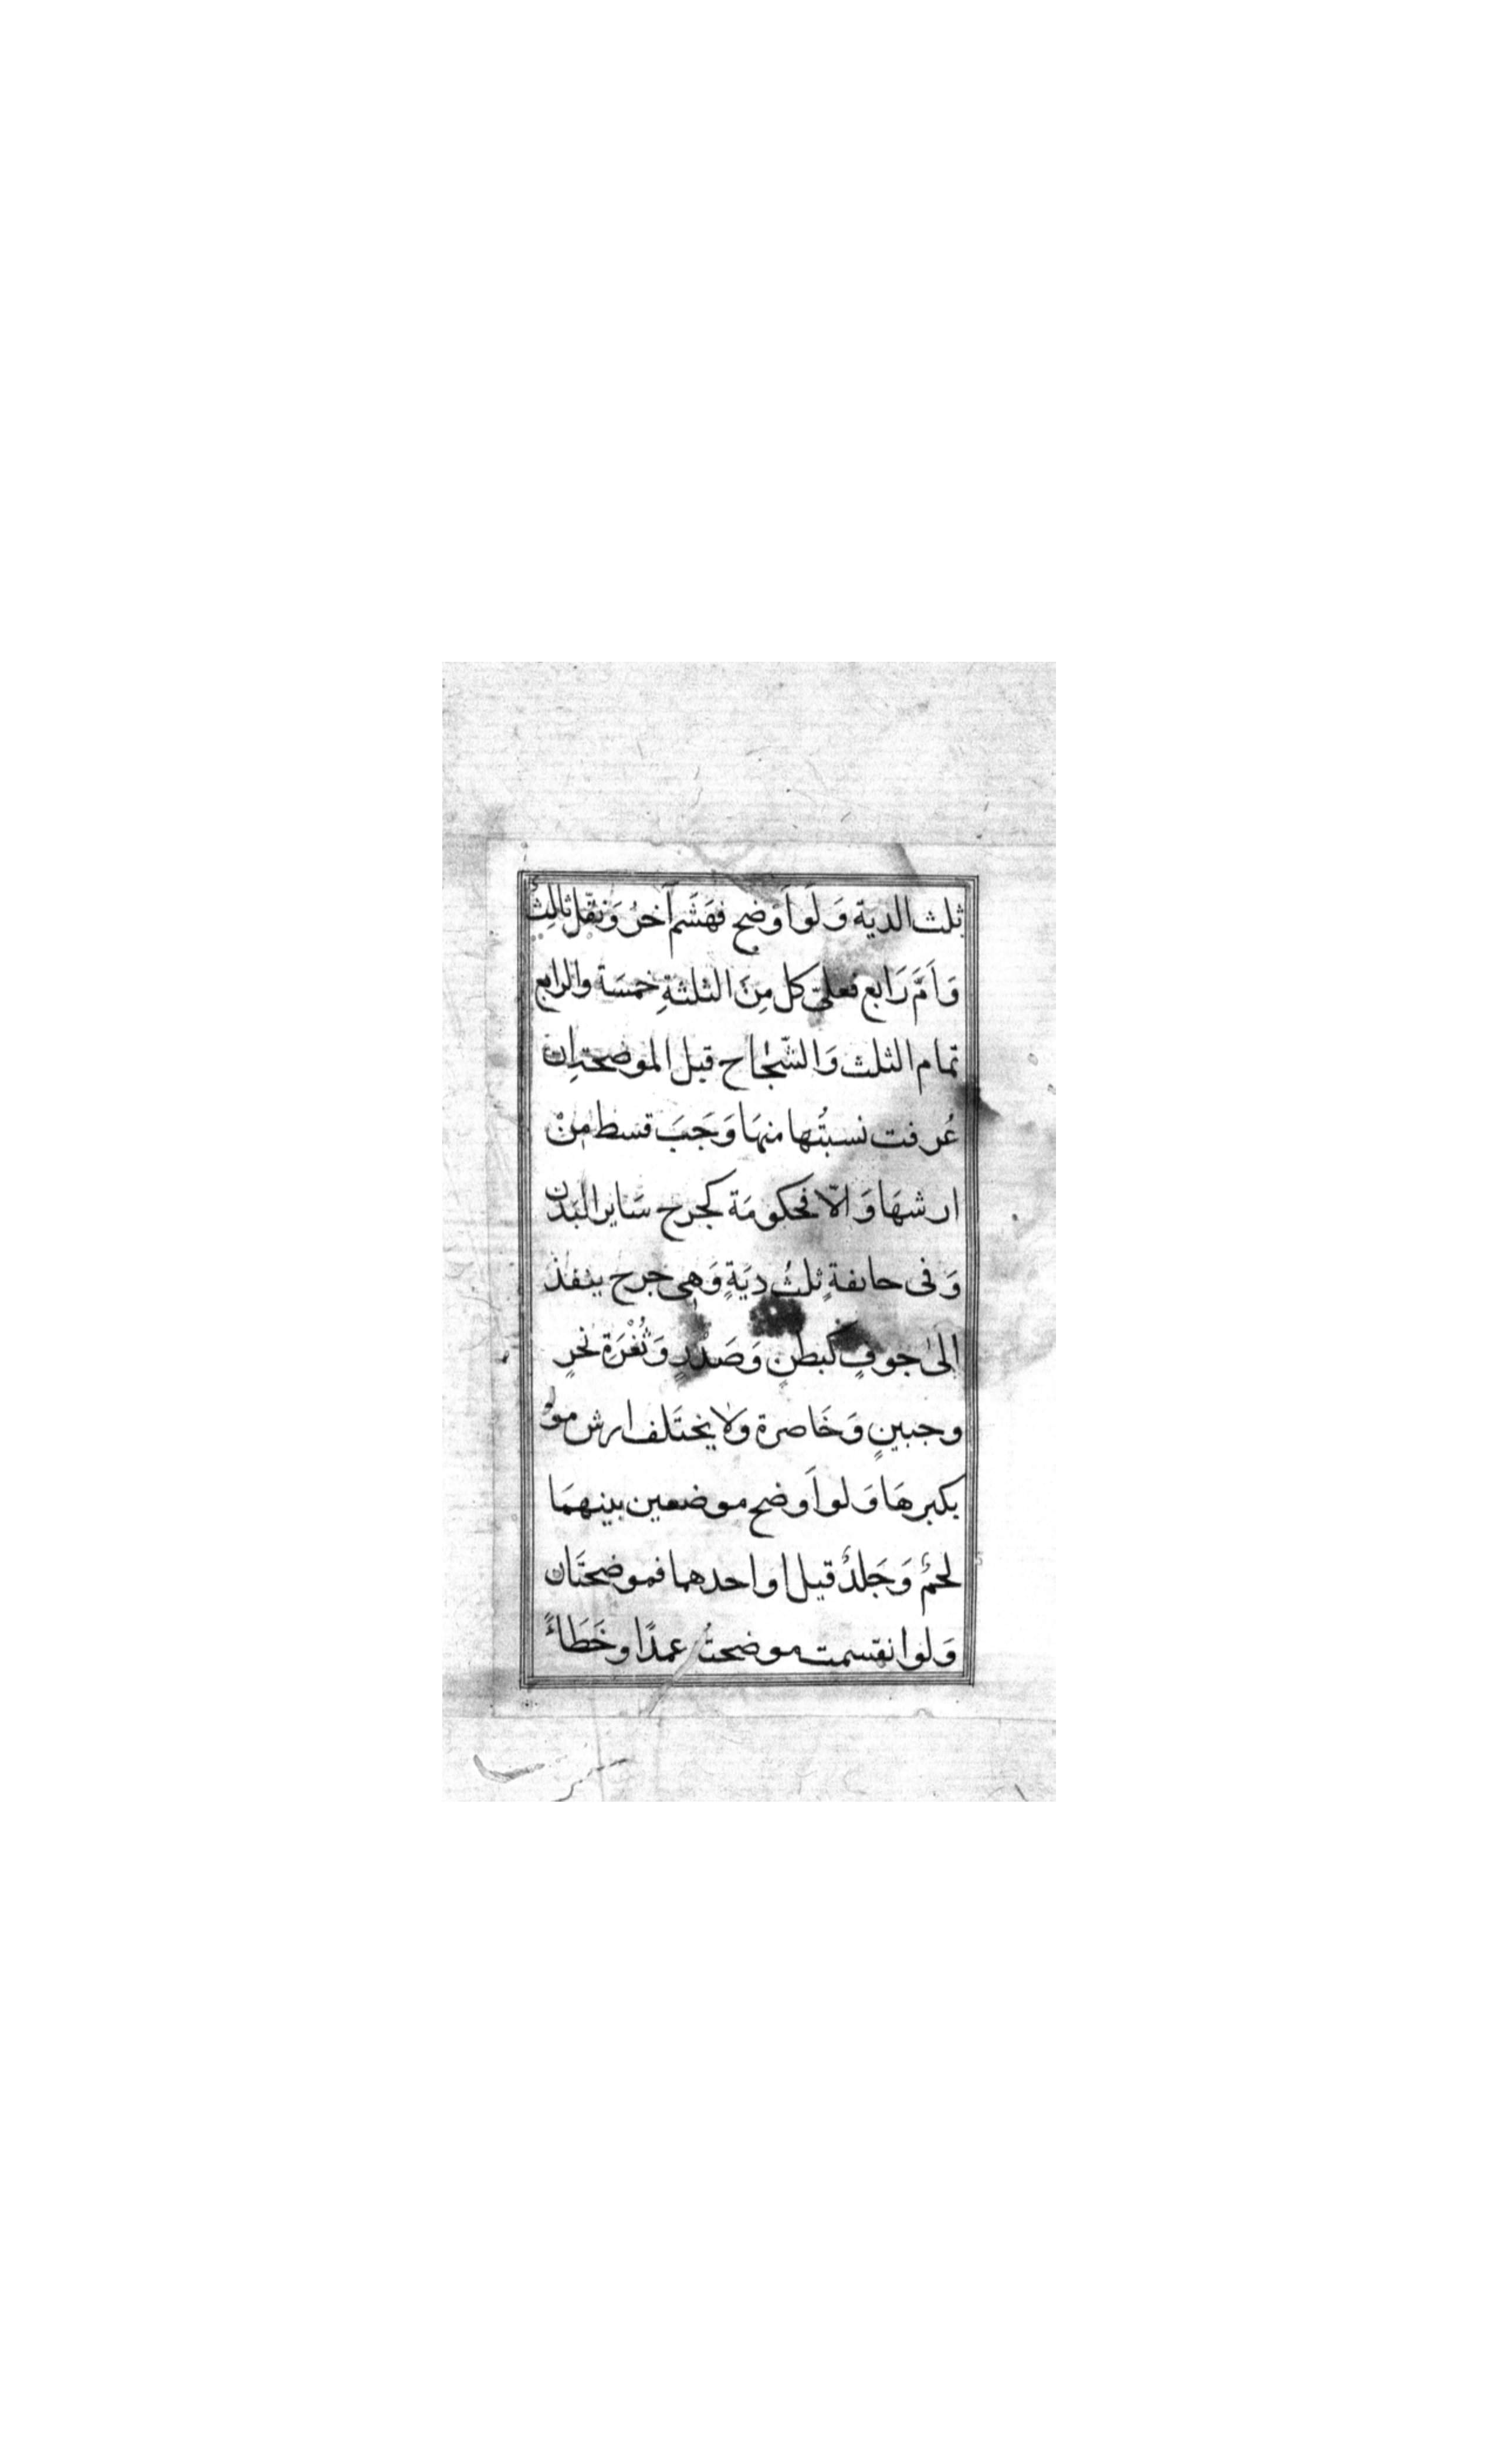 ثلث الدية وَلَو اَوضح فهَشَم آخرُ وَنقّل ثالِث
وَاَمَّ رَابع فعلىَ كل مِنَ الثلثةِ خمسَة والرابع
تمام الثلث وَالشّجاح قبل الموضحتاِن
عُرفت نسبتُها منهَا وَجَبَ قسط منْ
ارشهَا وَالّا فحكومَة كجرح سَاير البَدن
وَفى حايفةٍ ثلثُ ديَةٍ وَهى جرح ينفذ
الىٰ جوفٍ كبطنٍ وَصَدْرٍ وَثُغْرَةِ نحرٍ
وجبينٍ وَخَاصرة وَلا يختَلف ارش
بكبرهَا وَلو اَوضح موضعين بينهمَا
لحمٌ وَجَلدٌ قيل او احدهما فموضحتَان
وَلو انقسمت موضحتُ عمدًا وخَطَاءً